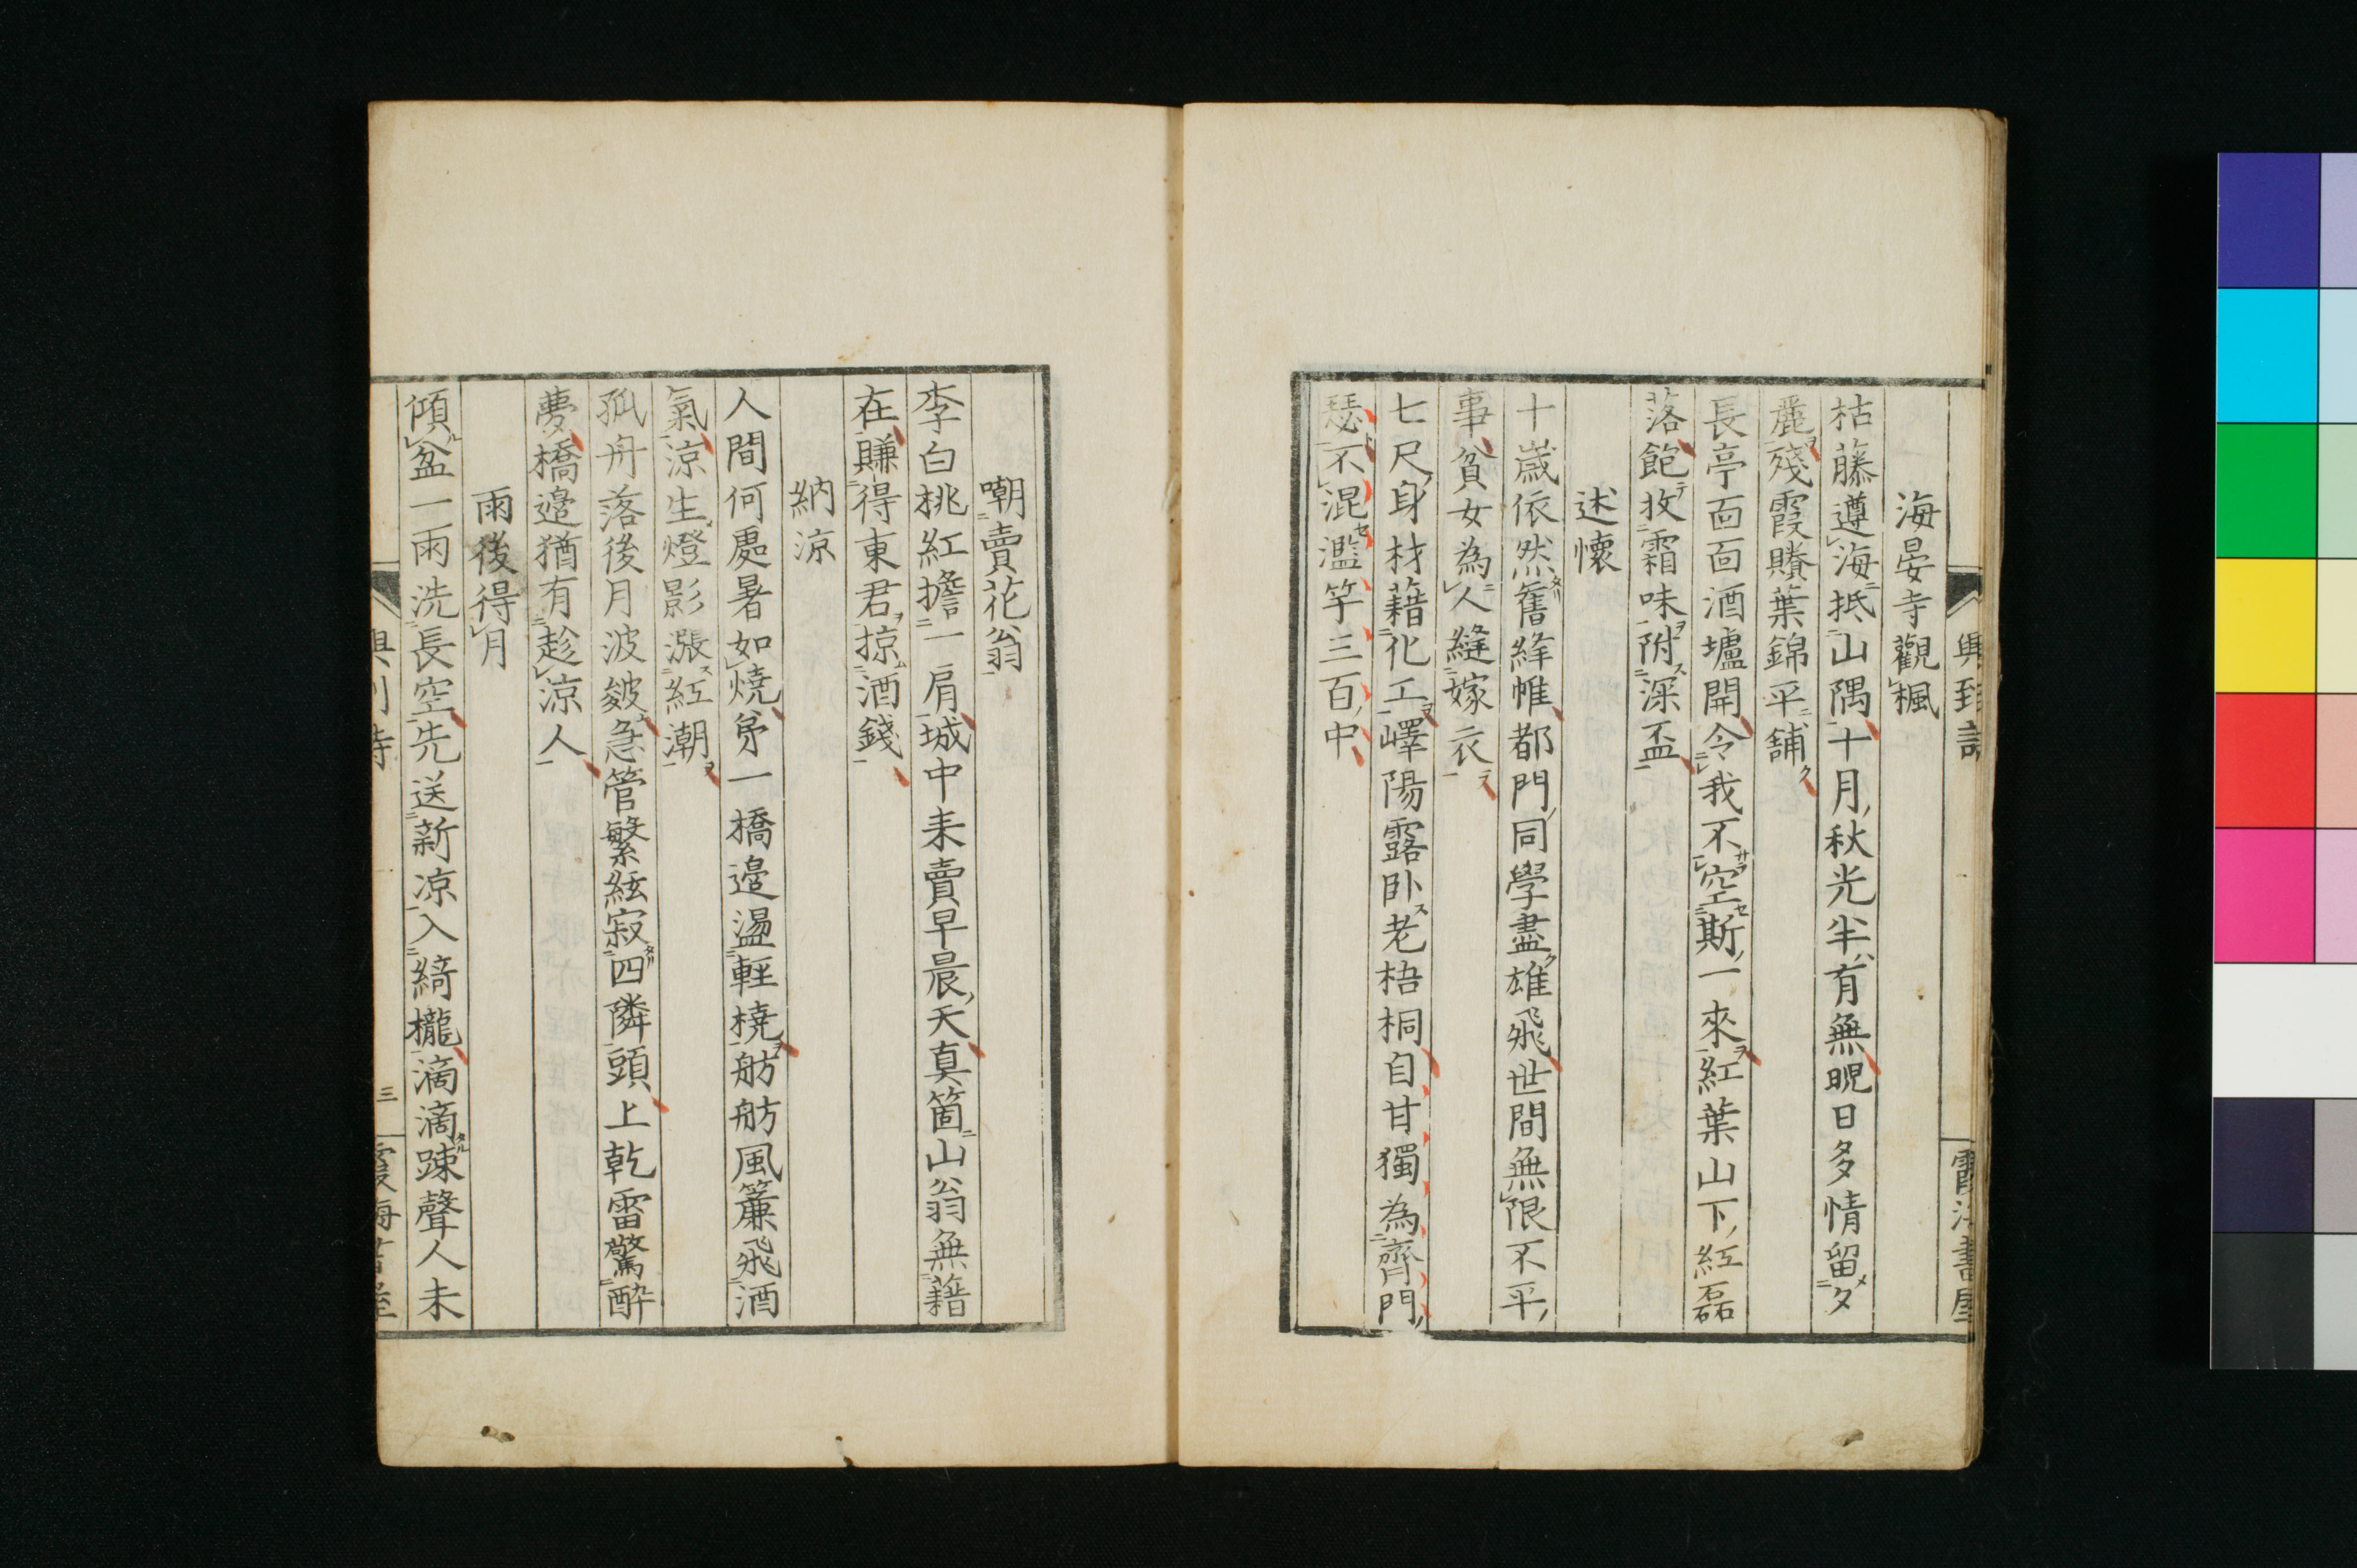 海晏寺觀楓
枯藤遵海抵山隅十月秋光半有無晛日多情留夕
麗殘霞賸葉錦平舗
長亭面面酒壚開令我不空斯一來紅葉山下紅磊
落飽收霜味附深盃
述懷
十歲依然舊絳帷都門同學盡雄飛世間無限不平
事貧女為人縫嫁衣
七尺身材藉化工嶧陽露臥老梧桐自甘獨為齊門
瑟不混濫竽三百中
嘲賣花翁
李白桃紅擔一肩城中来賣早晨天真箇山翁無藉
在賺得東君掠酒錢
納凉
人間何處暑如燒第一橋邊盪輕橈舫舫風簾飛酒
氣凉生燈影漲紅潮
孤舟落後月波皴急管繁絃寂四隣頭上乾雷驚醉
夢橋邉猶有趁凉人
雨後得月
傾盆一雨洗長空先送新凉入綺櫳滴滴踈聲人未
三